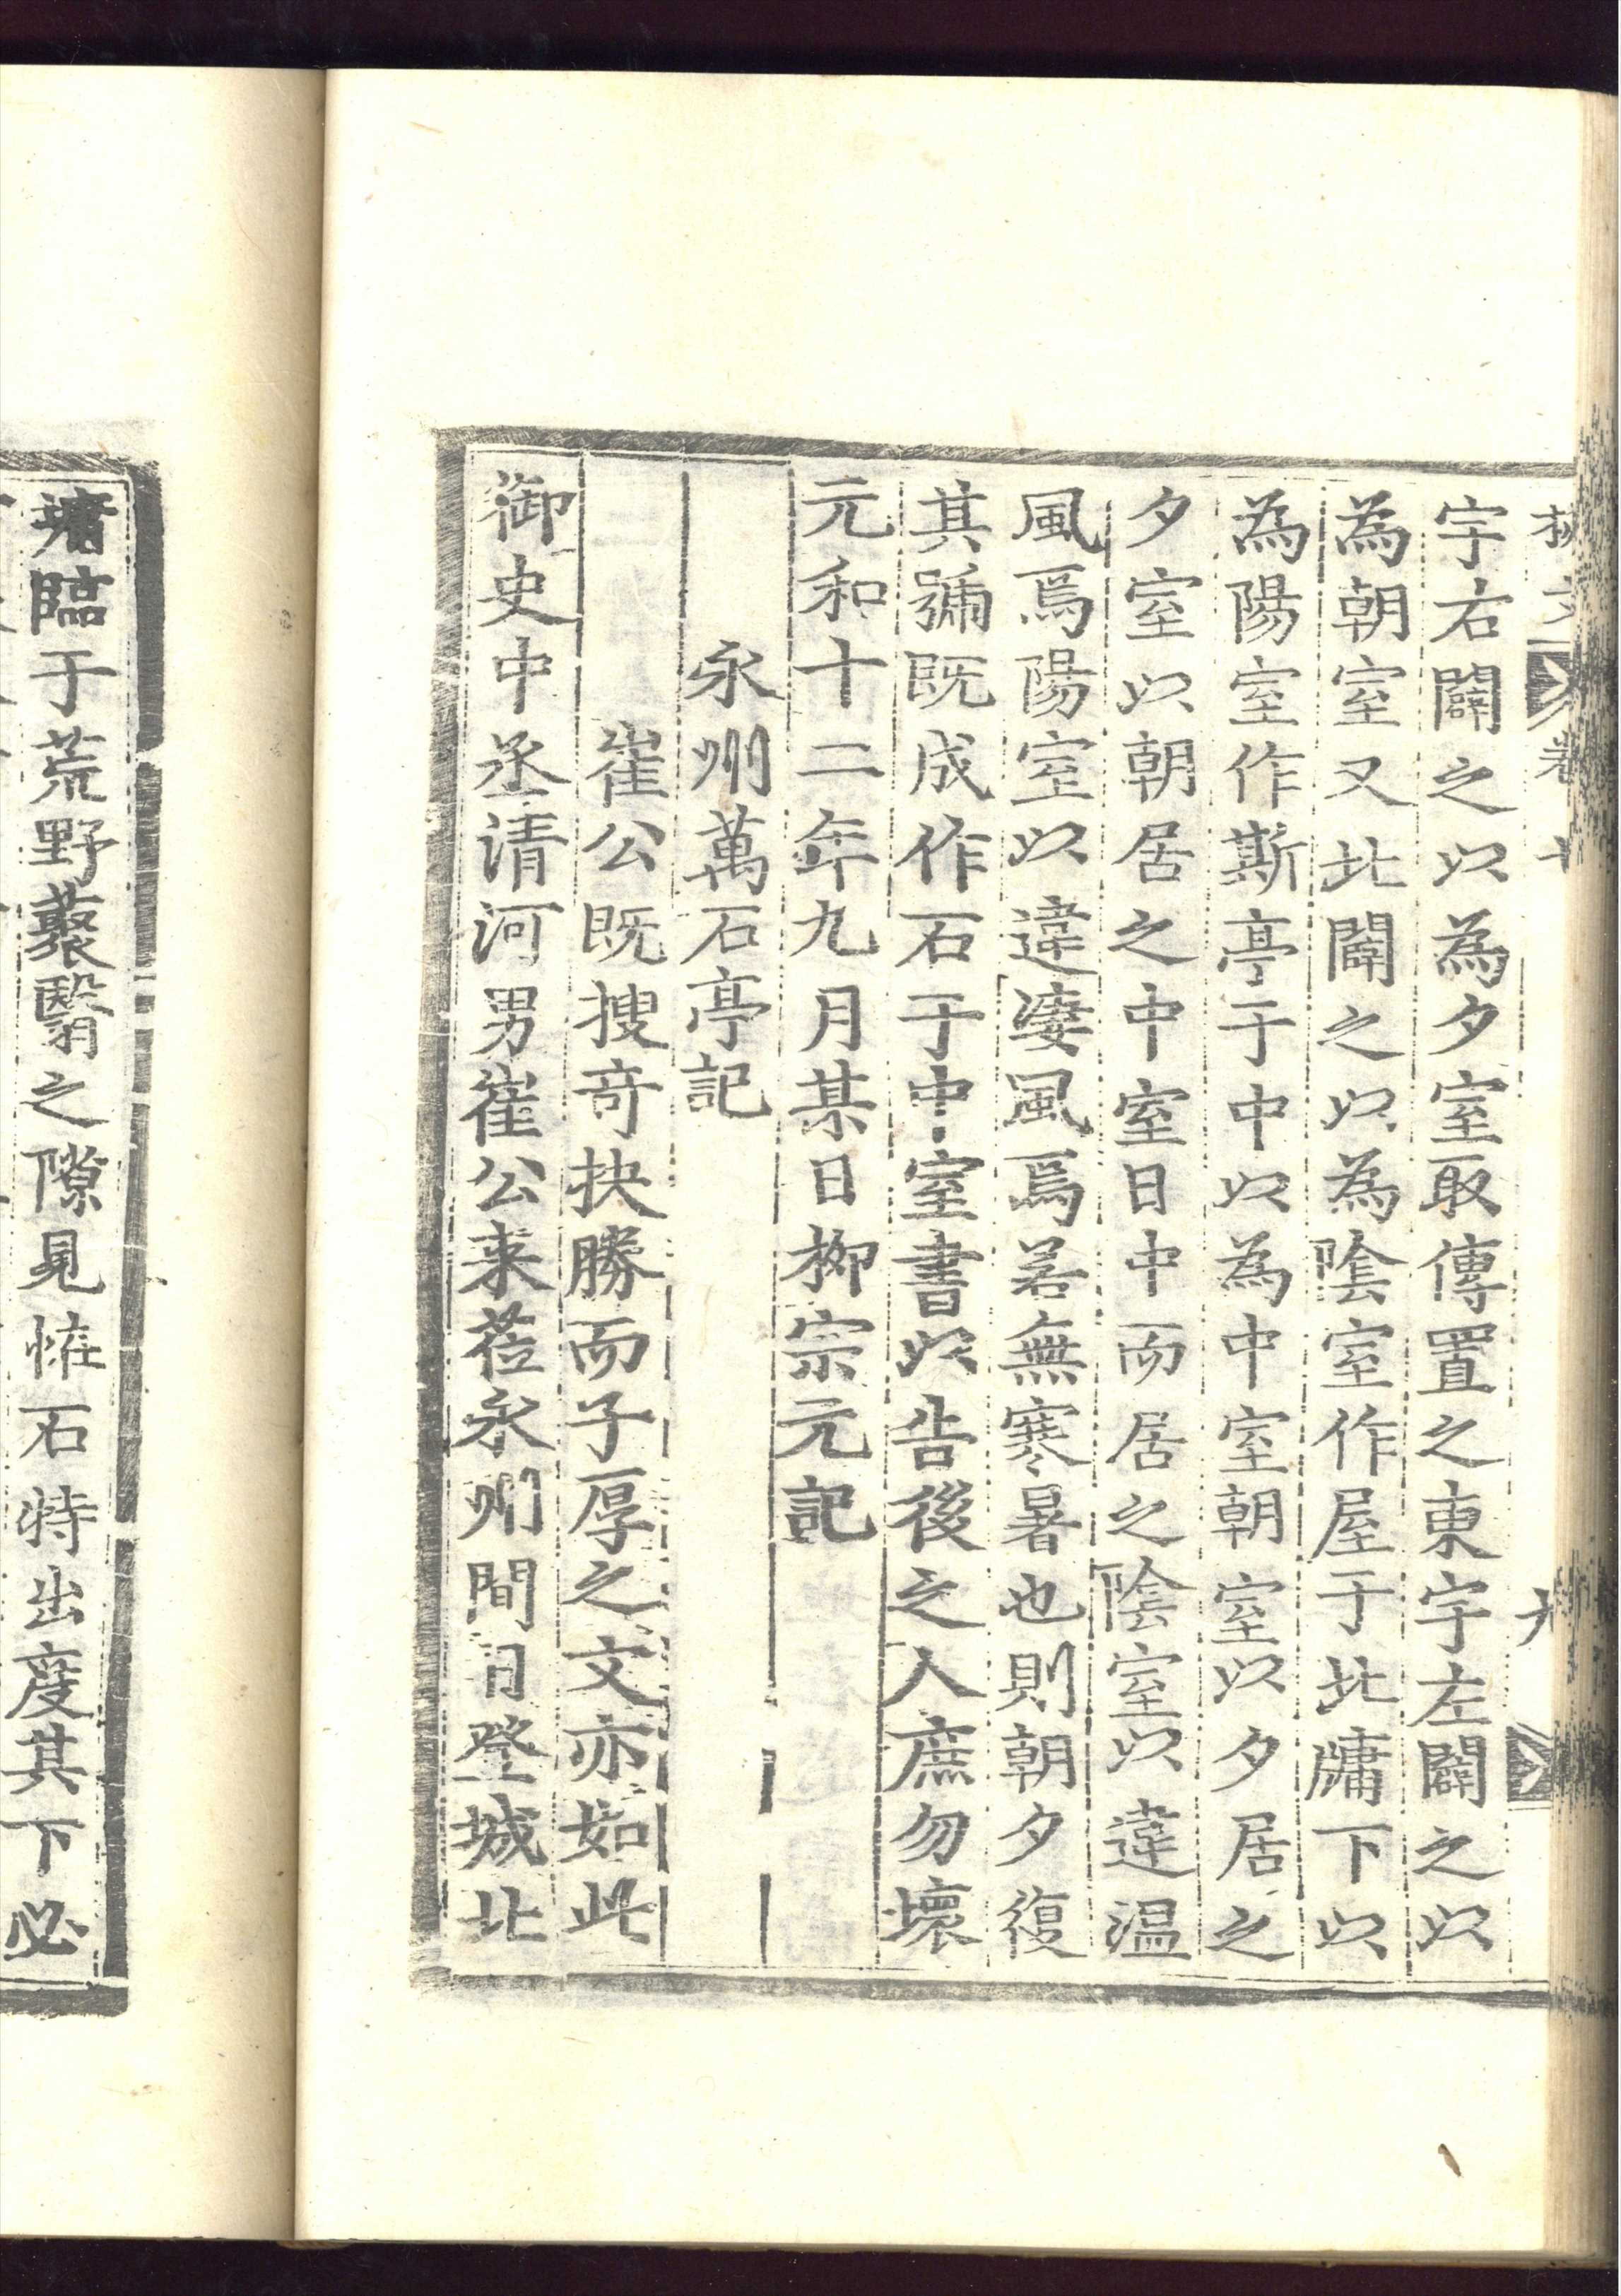 宇右闢之以為夕室取傳置之東宇左闢之以
為朝室又北闢之以為陰室作屋于北牖下以
為陽室作斯亭于中以為中室朝室以夕居之
夕室以朝居之中室日中而居之陰室以違温
風焉陽室以違凄風焉若無寒暑也則朝夕復
其號既成作石于中室書以告後之人庶勿壞
元和十二年九月某日柳宗元記
永州萬石亭記
崔公既搜竒抉勝而子厚之文亦如此
御史中丞清河男崔公来莅永州閒日登城北
墉臨于荒野藂翳之隙見恠石特出度其下必